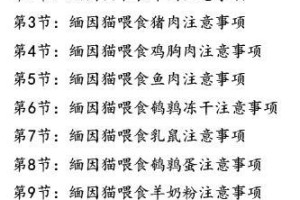 第3节：缅因猫喂食猪肉注意事项
第4节：缅因猫喂食鸡胸肉注意事项
第5节：缅因猫喂食鱼肉注意事项
第6节：缅因猫喂食鹌鹑冻干注意事项
第7节：缅因猫喂食乳鼠注意事项
第8节：缅因猫喂食鹌鹑蛋注意事项
第9节：缅因猫喂食羊奶粉注意事项